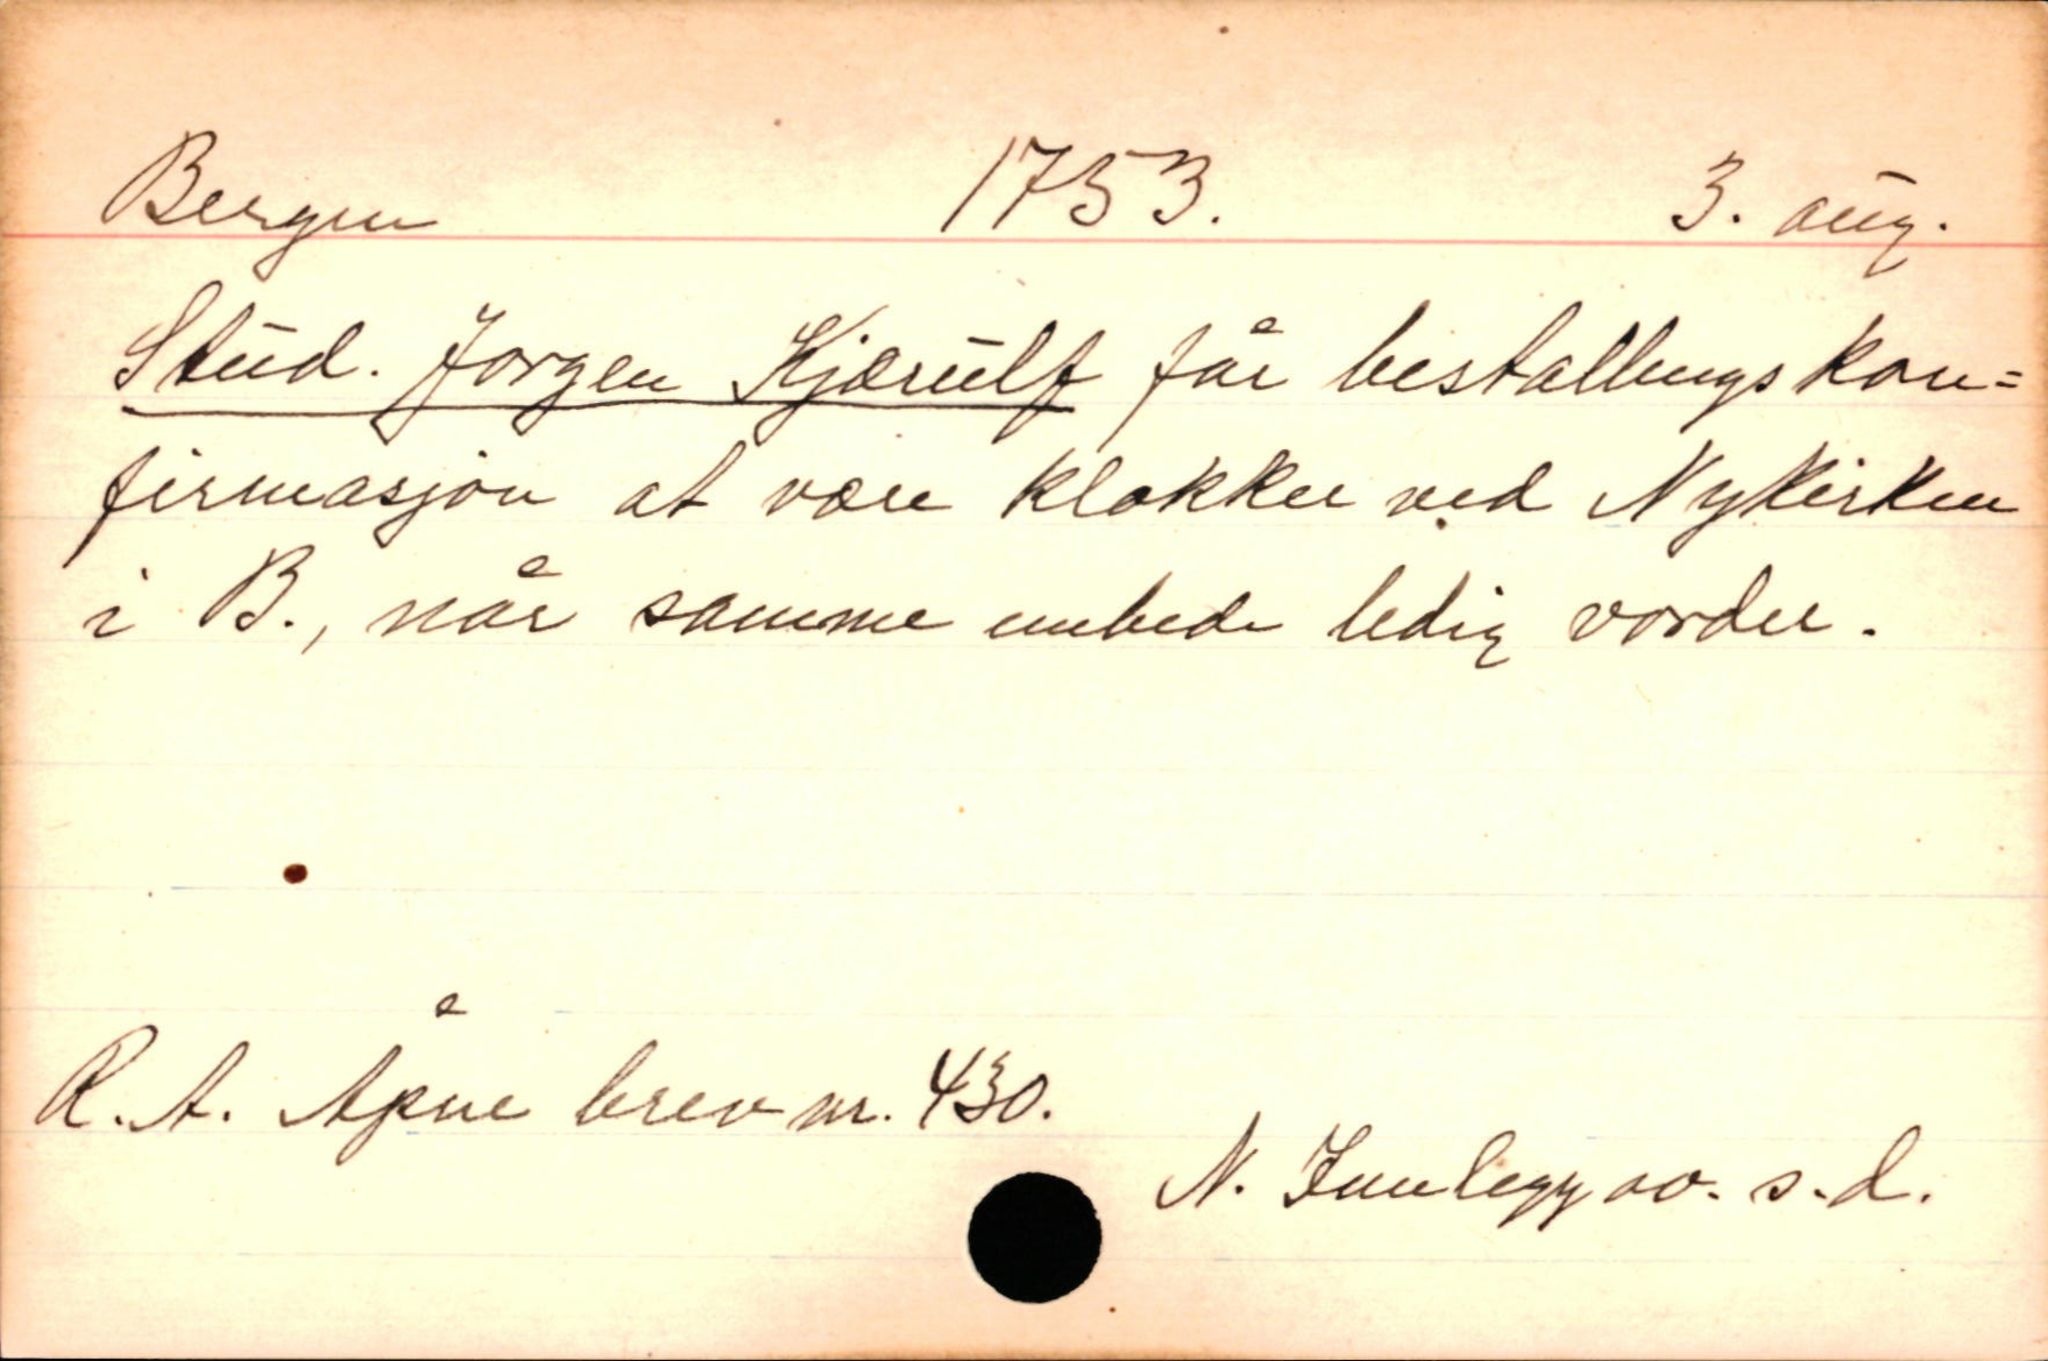 Bergen 1753. 3. aug.
Stud. Jørgen Kjærulf får bestallings kon=
firmasjon at være klokker ved Nykirken
i B., når samme embede ledig vorder.
R. A. Åpne brev nr. 430.
N. Innlegg av. s. d.